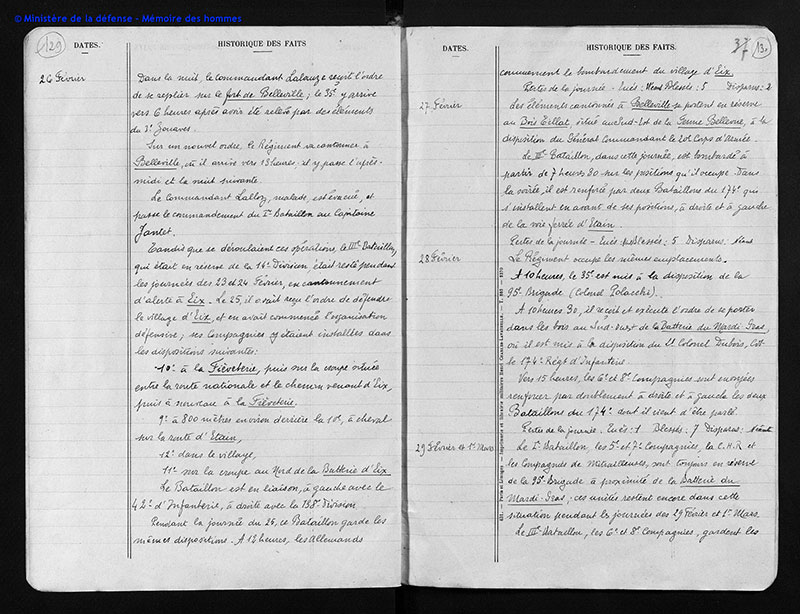 © Ministère de la défense - Mémoire des hommes
129
DATES.
HISTORIQUE DES FAITS
26 Février
Dans la nuit, le Commandant Lalauze reçut l'ordre
de se replier sur le fort de Belleville ; le 35e y arrive
vers 6 heures après avoir été relevé par des éléments
du 2e Zouaves.
Sur un nouvel ordre, le Régiment va cantonner à
Belleville, où il arrive vers 13 heures, il y passe l'après-
midi et la nuit suivante.
Le Commandant Lalloz, malade, est évacué, et
passe le commandement du Ier Bataillon au Capitaine
Jantet.
Tandis que se déroulaient ces opérations, le IIIe Bataillon,
qui était en réserve de la 14e Division était resté pendant
les journées des 23 et 24 Février, en cantonnement
d'alerte à Eix. Le 25, il avait reçu l'ordre de défendre
le village d'Eix, et en avait commencé l'organisation
défensive ; ses Compagnies y étaient installées dans
les dispositions suivantes :
10e à la Fiéveterie, puis sur la croupe située
entre la route nationale et le chemin venant d'Eix,
puis à nouveau à la Fiéveterie.
9e à 800 mètres environ derrière la 10e, à cheval
sur la route d'Etain,
12e dans le village,
11e sur la croupe au Nord de la Batterie d'Eix
Le Bataillon est en liaison, à gauche avec le
42e d'Infanterie, à droite avec la 132e Division
Pendant la journée du 26, ce Bataillon garde les
mêmes dispositions. A 12 heures, les Allemands
DATES.
HISTORIQUE DES FAITS.
37
130
commencent le bombardement du village d'Eix.
Pertes de la journée - Tués : Néant Blessés : 5 Disparus : 2
27 Février
Les éléments cantonnés à Belleville se portent en réserve
au Bois situé au Sud-Est de la Ferme Bellevue, à la
disposition du Général Commandant le 20e Corps d'Armée.
Le IIIe Bataillon, dans cette journée, est bombardé à
partir de 7 heures 30 sur les positions qu'il occupe. Dans
la soirée, il est renforcé par deux Bataillons du 174e qui
s'installent en avant de ses positions, à droite et à gauche
de la voie ferrée d'Etain.
Pertes de la journée - Tués Blessés : 5 Disparus : Néant
28 Février
Le Régiment occupe les mêmes emplacements.
A 10 heures, le 35e est mis à la disposition de la
95e Brigade (Colonel Polacchi).
A 10 heures 30, il reçoit et exécute l'ordre de se porter
dans les bois au Sud-Ouest de la Batterie du Mardi Gras,
où il est mis à la disposition du Lt Colonel Dubois, Cdt
le 174e Régt d'Infanterie.
Vers 15 heures, les 6e et 8e Compagnies sont envoyées
renforcer par doublement à droite et à gauche les deux
Bataillons du 174e dont il vient d'être parlé.
Pertes de la journée. Tués : 1 Blessés : 7 Disparus : Néant
29 Février et 1er Mars
Le Ier Bataillon, les 5e et 7e Compagnies, la C.H.R et
les Compagnies de Mitrailleuses, sont toujours en réserve
de la 95e Brigade à proximité de la Batterie du
Mardi-Gras ; ces unités restent encore dans cette
situation pendant les journées des 29 Février et 1er Mars.
Le IIIe Bataillon, les 6e et 8e Compagnies, gardent les